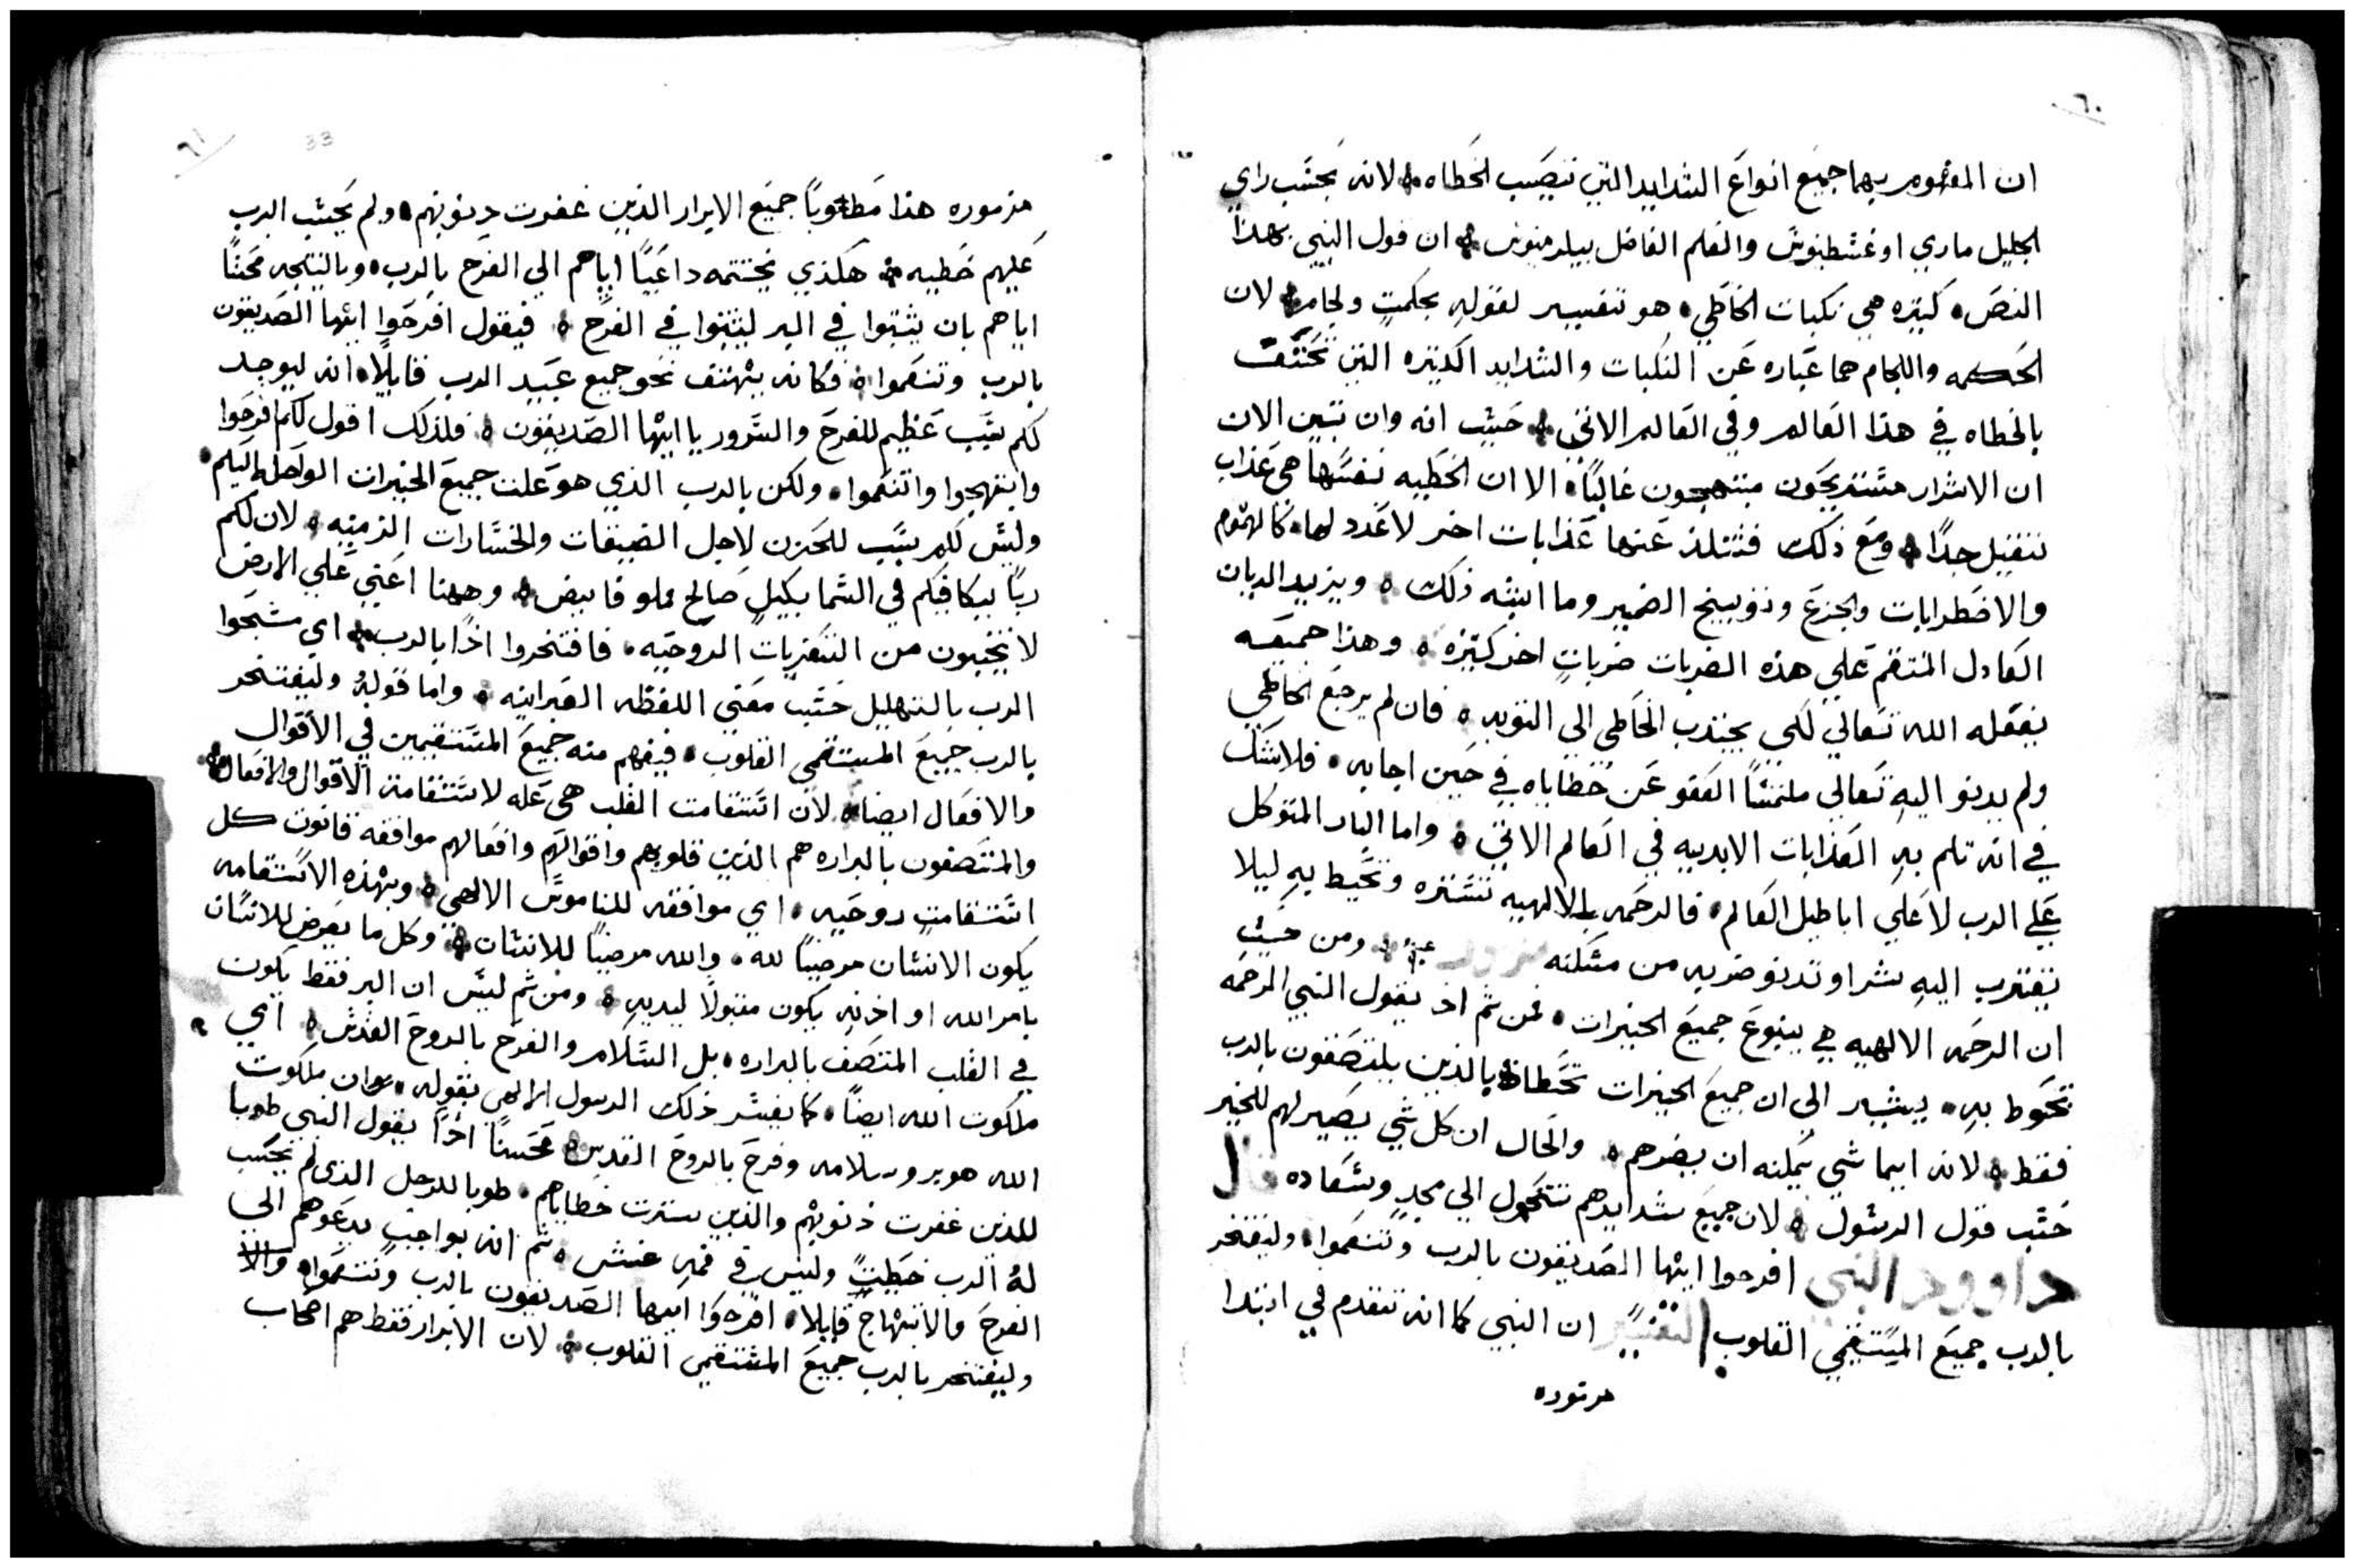 ٦٠
ان المفهوم بهما جميع انواع الشدايد التي تصيب الخطاه لانه بحسب راي
الجليل ماري اوغسطينوس والمعلم الفاضل بيلرمينوس ان قول النبي بهذا
النص كثيره هي نكبات الخاطي هو تفسير لقوله بحكمتٍ ولجام لان
الحكمه واللجام هما عباره عن النكبات والشدايد الكثيره التي تحتف
بالخطاه في هذا العالم وفي العالم الاتي حيث انه وان تبين الان
ان الاشرار مستريحون مبتهجون غالبًا الا ان الخطيه نفسها هي عذاب
ثقيل جدًا ومع ذلك فتتلد عنها عذابات اخر لا عدد لها كالهموم
والاضطرابات والجزع وتوبيخ الضمير وما اشبه ذلك ويزيد الديان
العادل المنتقم علي هذه الضربات ضرباتٍ اخر كثيره وهذا جميعه
يفعله الله تعالي لكي يجتذب الخاطي الي التوبه فان لم يرجع الخاطي
ولم يدنو اليه تعالي ملتمسًا العفو عن خطاياه في حين اجابه فلا شك
في انه تلم به العذابات الابديه في العالم الاتي واما البار المتوكل
علي الرب لا علي اباطيل العالم فالرحمه الالهيه تستره وتحيط به ليلا
يقترب اليه شر او تدنو ضربه من مسكنه ومن حيث
ان الرحمه الالهيه هي ينبوع جميع الخيرات فمن ثم اذ يقول النبي الرحمه
تحوط به يشير الي ان جميع الخيرات بالذين يلتصقون بالرب
فقط لانه ايما شي يمكنه ان يضرهم والحال ان كل شي يصير لهم للخير
حسب قول الرسول لان جميع شدايدهم تتحول الي مجدٍ وسعاده قال
داوود النبي افرحوا ايها الصديقون بالرب وتنعموا وليفتخر
بالرب جميع المستقيمي القلوب التفسير ان النبي كما انه تقدم في ابتدا
مزموره
٦١
33
مزموره هذا مطوبًا جميع الابرار الذين غفرت ذنوبهم ولم يحسب الرب
عليهم خطيه هكذي يختتمه داعيًا اياهم الي الفرح بالرب وبالنتيجه محثًا
اياهم بان يثبتوا في البر ليثبتوا في الفرح فيقول افرحوا ايها الصديقون
بالرب وتنعموا فكانه يهتف نحو جميع عبيد الرب قايلًا انه ليوجد
لكم سبب عظيم للفرح والسرور يا ايها الصديقون فلذلك اقول لكم افرحوا
وابتهجوا واتنعموا ولكن بالرب الذي هو علت جميع الخيرات الواصله اليكم
وليس لكم سبب للحزن لاجل الضيقات والخسارات الزمنيه لان لكم
ربًا يكافيكم في السما بكيلٍ صالح مملو فايض وههنا اعني علي الارض
لا تخيبون من التعزيات الروحيه فافتخروا اذًا بالرب اي سبحوا
الرب بالتهليل حسب معني اللفظه العبرانيه واما قوله وليفتخر
بالرب جميع المستقمي القلوب فيفهم منه جميع المستقيمين في الاقوال
والافعال ايضا لان استقامت القلب هي عله لاستقامة الاقوال والافعال
والمتصفون بالبراره هم الذين قلوبهم واقوالهم وافعالهم موافقه قانون كل
استقامت روحيه اي موافقه للناموس الالهي وبهذه الاستقامه
يكون الانسان مرضيًا لله والله مرضيًا للانسان وكل ما يعرض للانسان
بامر الله او اذنه يكون مقبولًا لديه ومن ثم ليس ان البر فقط يكون
في القلب المتصف بالبراره بل السلام والفرح بالروح القدس اي
ملكوت الله ايضًا كما يفسر ذلك الرسول الالهي بقوله ان ملكوت
الله هو بر وسلامه وفرح بالروح القدس فحسنًا اذًا يقول النبي طوبا
للذين غفرت ذنوبهم والذين سترت خطاياهم طوبا للرجل الذي لم يحسب
له الرب خطيتً وليس في فمه غش ثم انه بواجب يدعوهم الي
الفرح والابتهاج قايلا افرحوا ايها الصديقون بالرب وتنعموا والا
وليفتخر بالرب جميع المستقمي القلوب لان الابرار فقط هم اصحاب